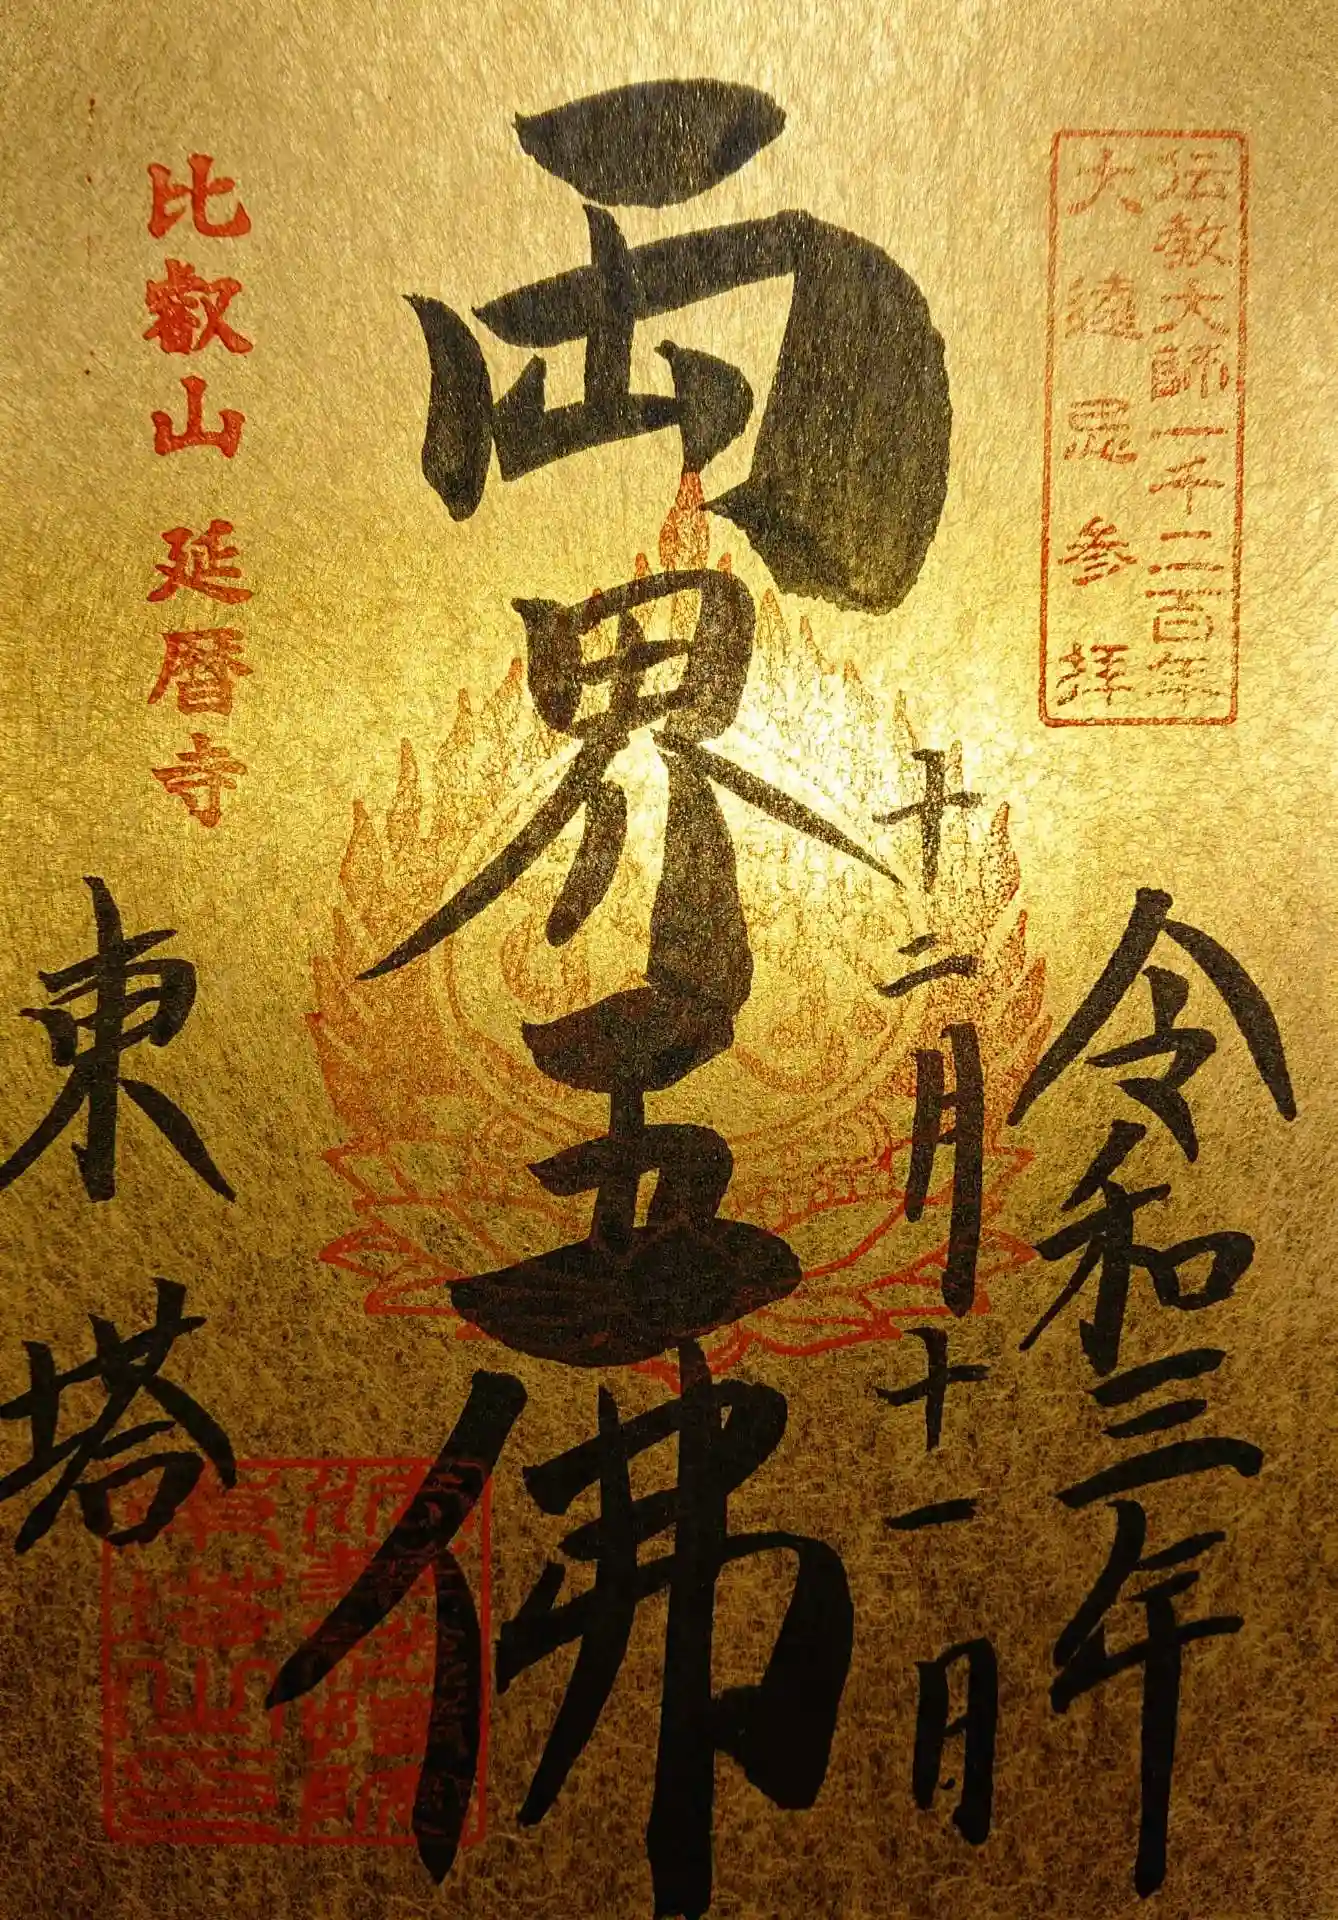 伝教大師一千二百年
大遠忌参拝
令和三年
十二月十一日
両界五佛
比叡山 延暦寺
東塔